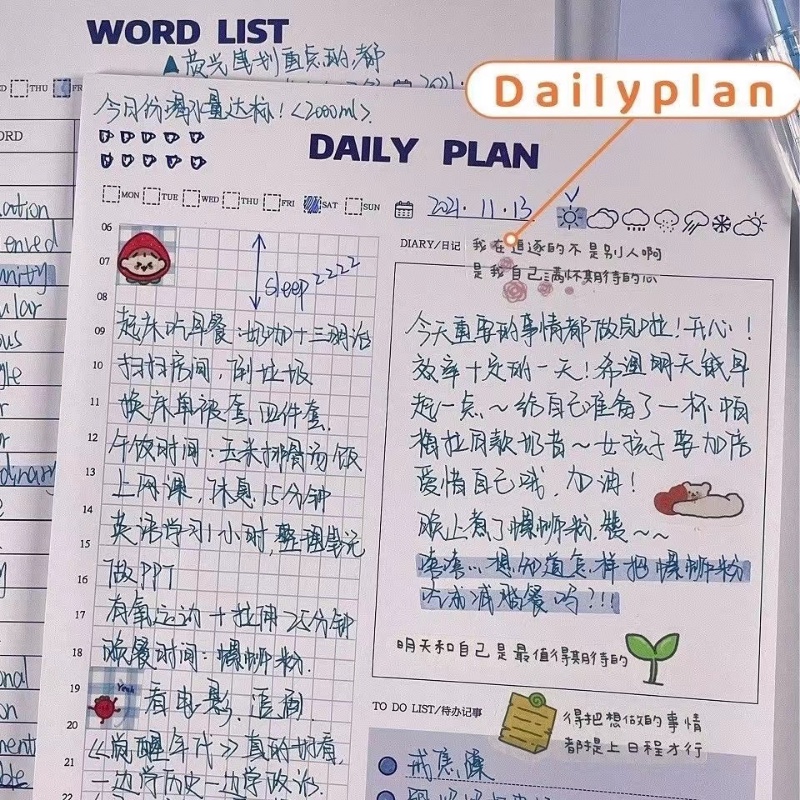 WORD LIST
▲荧光笔划重点的都
THU
Dailyplan
今日份喝水量达标!(2000ml).
DAILY PLAN
MON TUE WED THU FRI SAT SUN
2021.11.13
ORD
ation
ular
ous
dinary
onal
on
ment
06
07
08
09
10
11
12
13
14
15
16
17
18
19
20
21
22
sleep zzzz
起床吃早餐:奶咖+三明治
扫扫房间,倒垃圾
换床单被套.四件套.
午饭时间:玉米排骨汤饭
上网课,休息15分钟
英语学习1小时,整理笔记
做PPT
有氧运动+拉伸25分钟
晚餐时间:螺蛳粉.
Yeah
看电影,追剧
《觉醒年代》真的好看,
一边学历史一边学政治.
DIARY/日记
我在追逐的不是别人啊
是我自己满怀期待的心
今天重要的事情都做完啦!开心!
效率十足的一天!希望明天能早
起一点~给自己准备了一杯帕
梅拉同款奶昔~女孩子要加倍
爱惜自己哦,加油!
晚上煮了螺蛳粉.赞~~
嘻嘻...想知道怎样把螺蛳粉
吃成减脂餐吗?!!!
明天和自己是最值得期待的
TO DO LIST/待办记事
得把想做的事情
都提上日程才行
戒焦糖